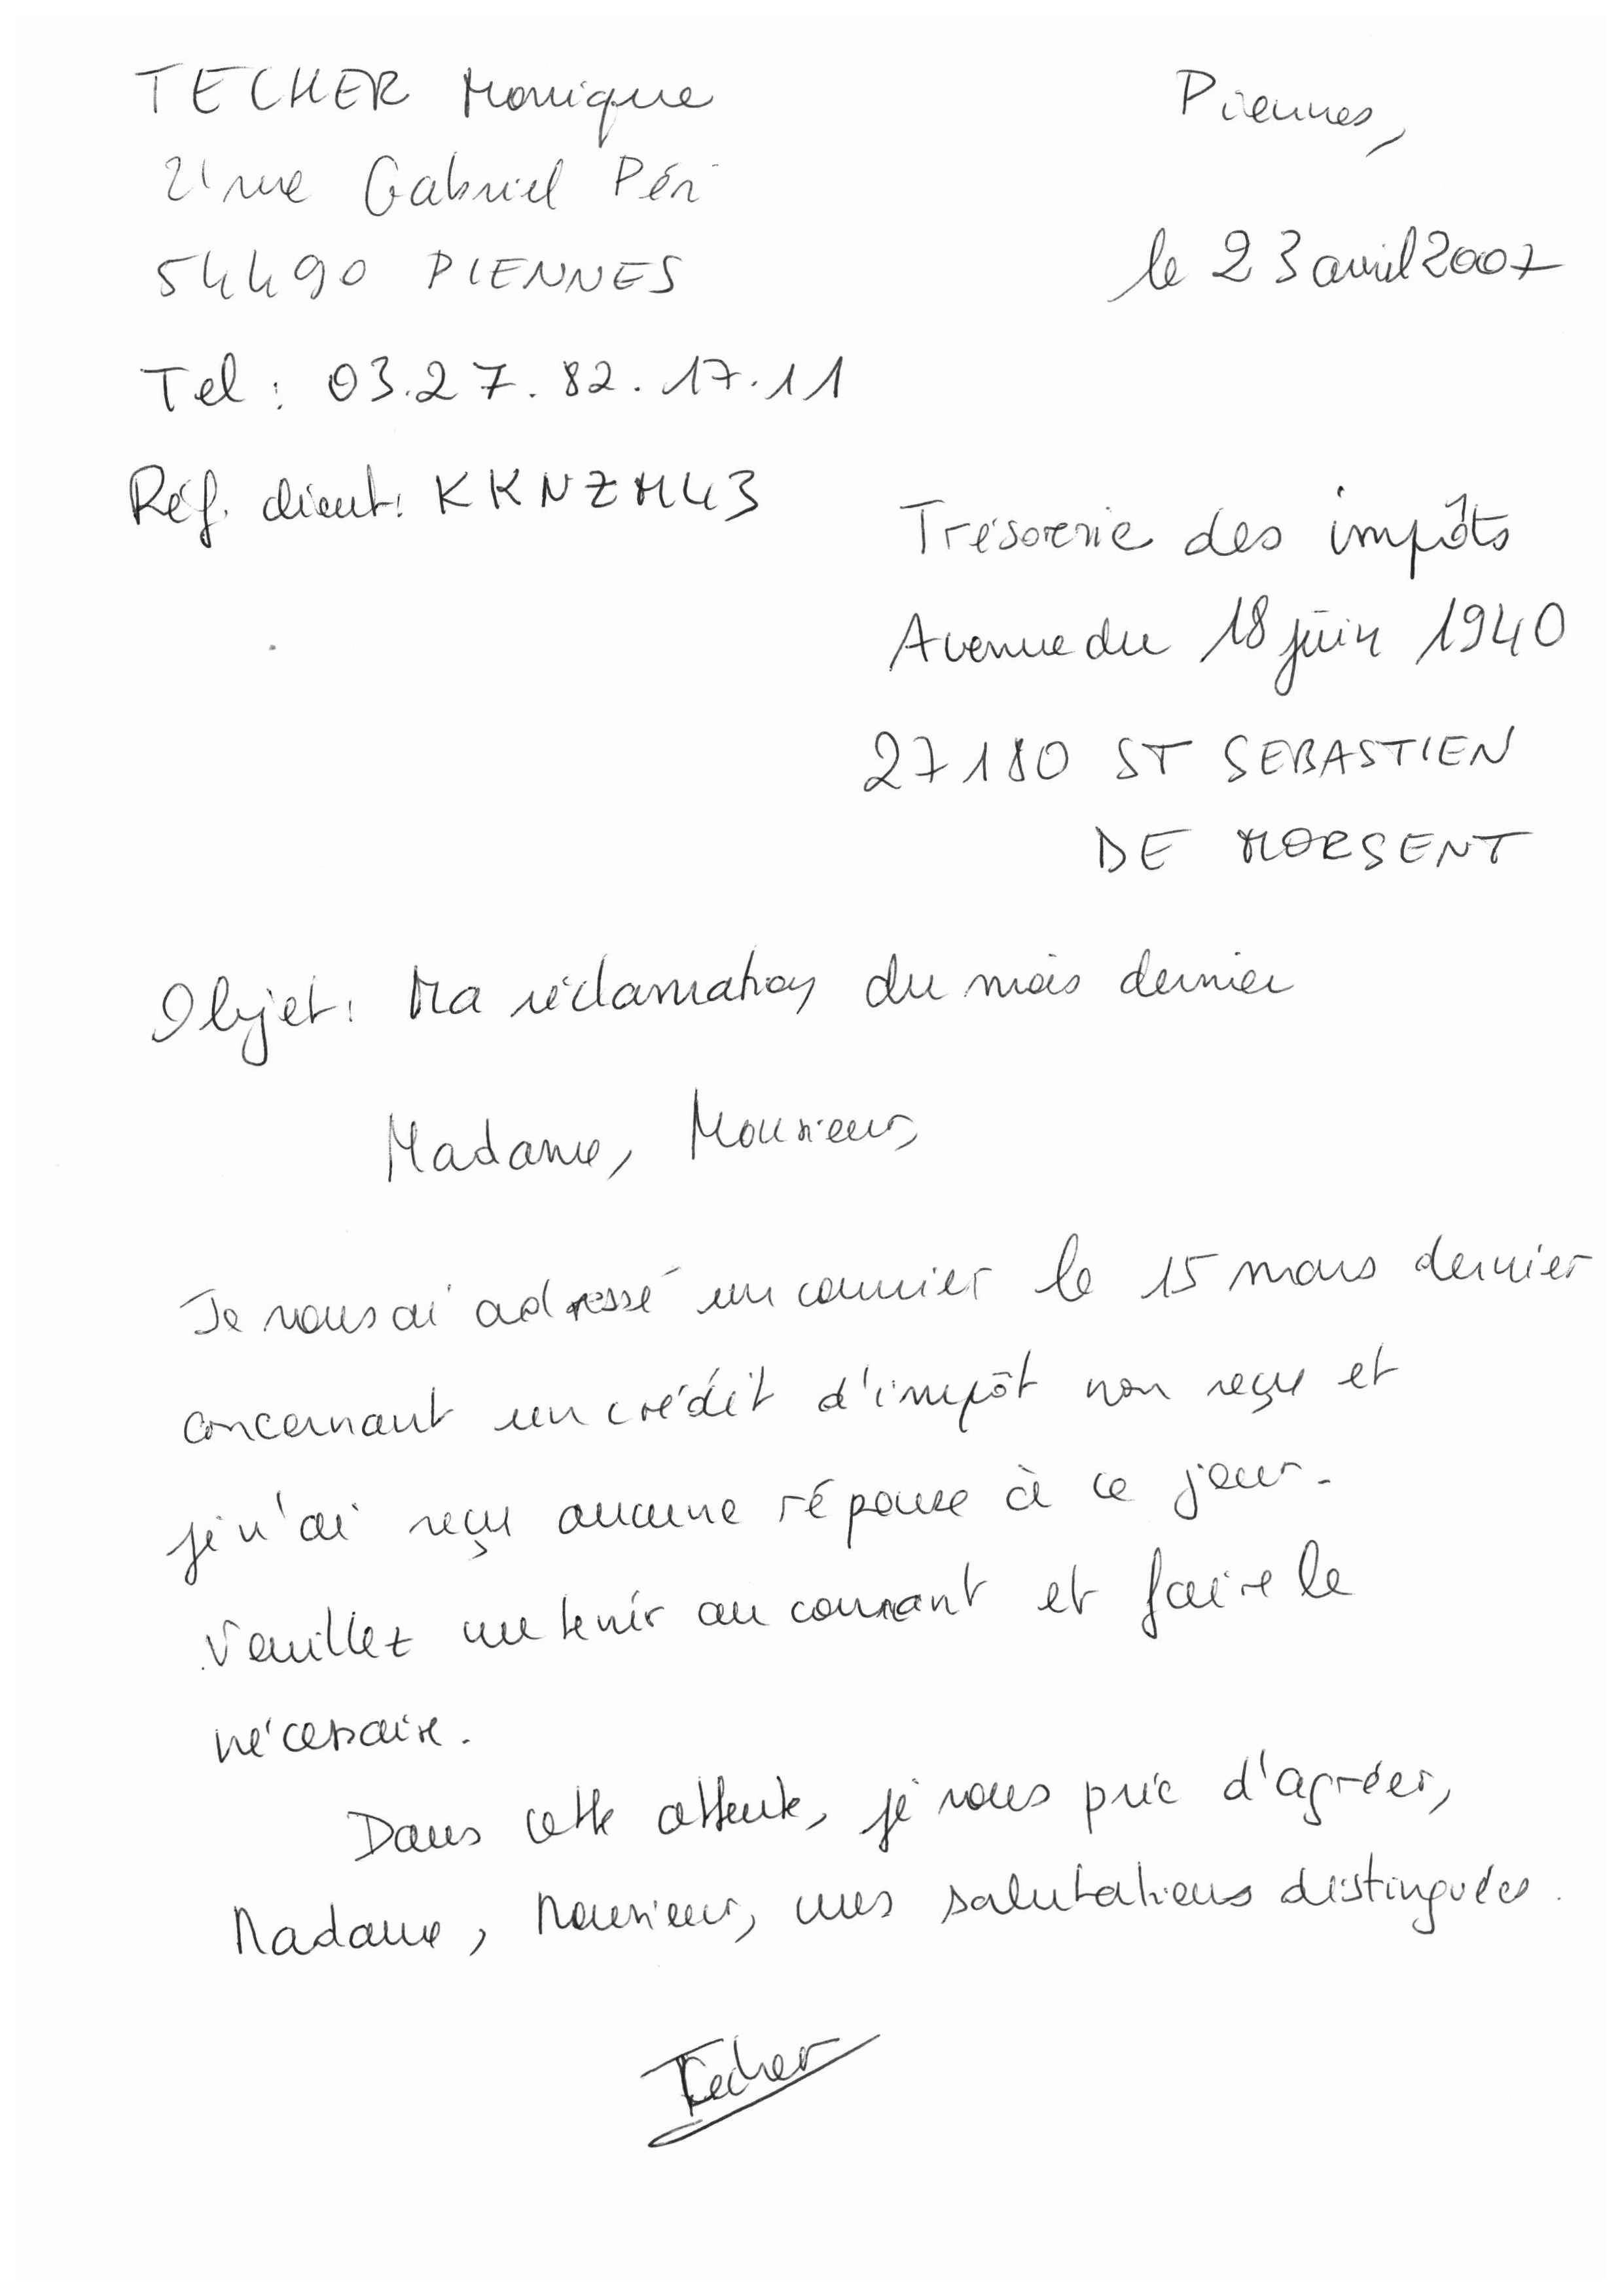 TECHER Monique
Piennes,
21 rue Gabriel Péri
54490 PIENNES
le 23 avril 2007
Tel : 03.27.82.17.11
Réf. client: KKNZM43
Trésorerie des impôts
Avenue du 18 juin 1940
27180 ST SEBASTIEN
DE MORSENT
Objet: Ma réclamation du mois dernier
Madame, Monsieur,
Je vous ai adressé un courrier le 15 mars dernier
concernant un crédit d'impôt non reçu et
je n'ai reçu aucune réponse à ce jour.
Veuillez me tenir au courant et faire le
nécessaire.
Dans cette attente, je vous prie d'agréer,
Madame, Monsieur, mes salutations distinguées.
Techer